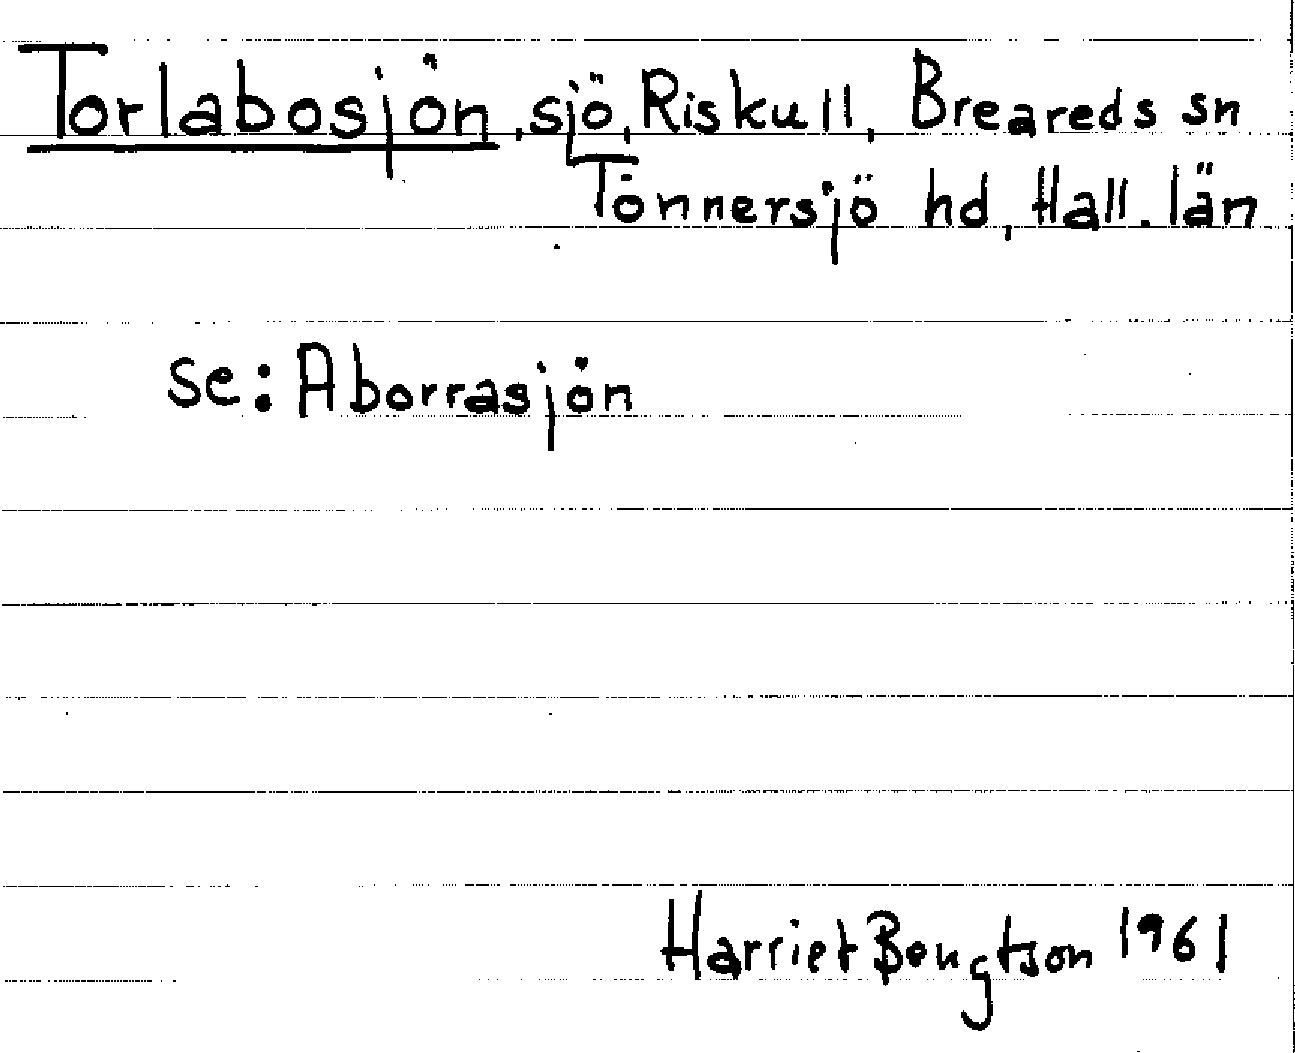 Torlabosjön, sjö, Riskull, Breareds sn
Tönnersjö hd, Hall. län
se: Aborrasjön
Harriet Bengtson 1961